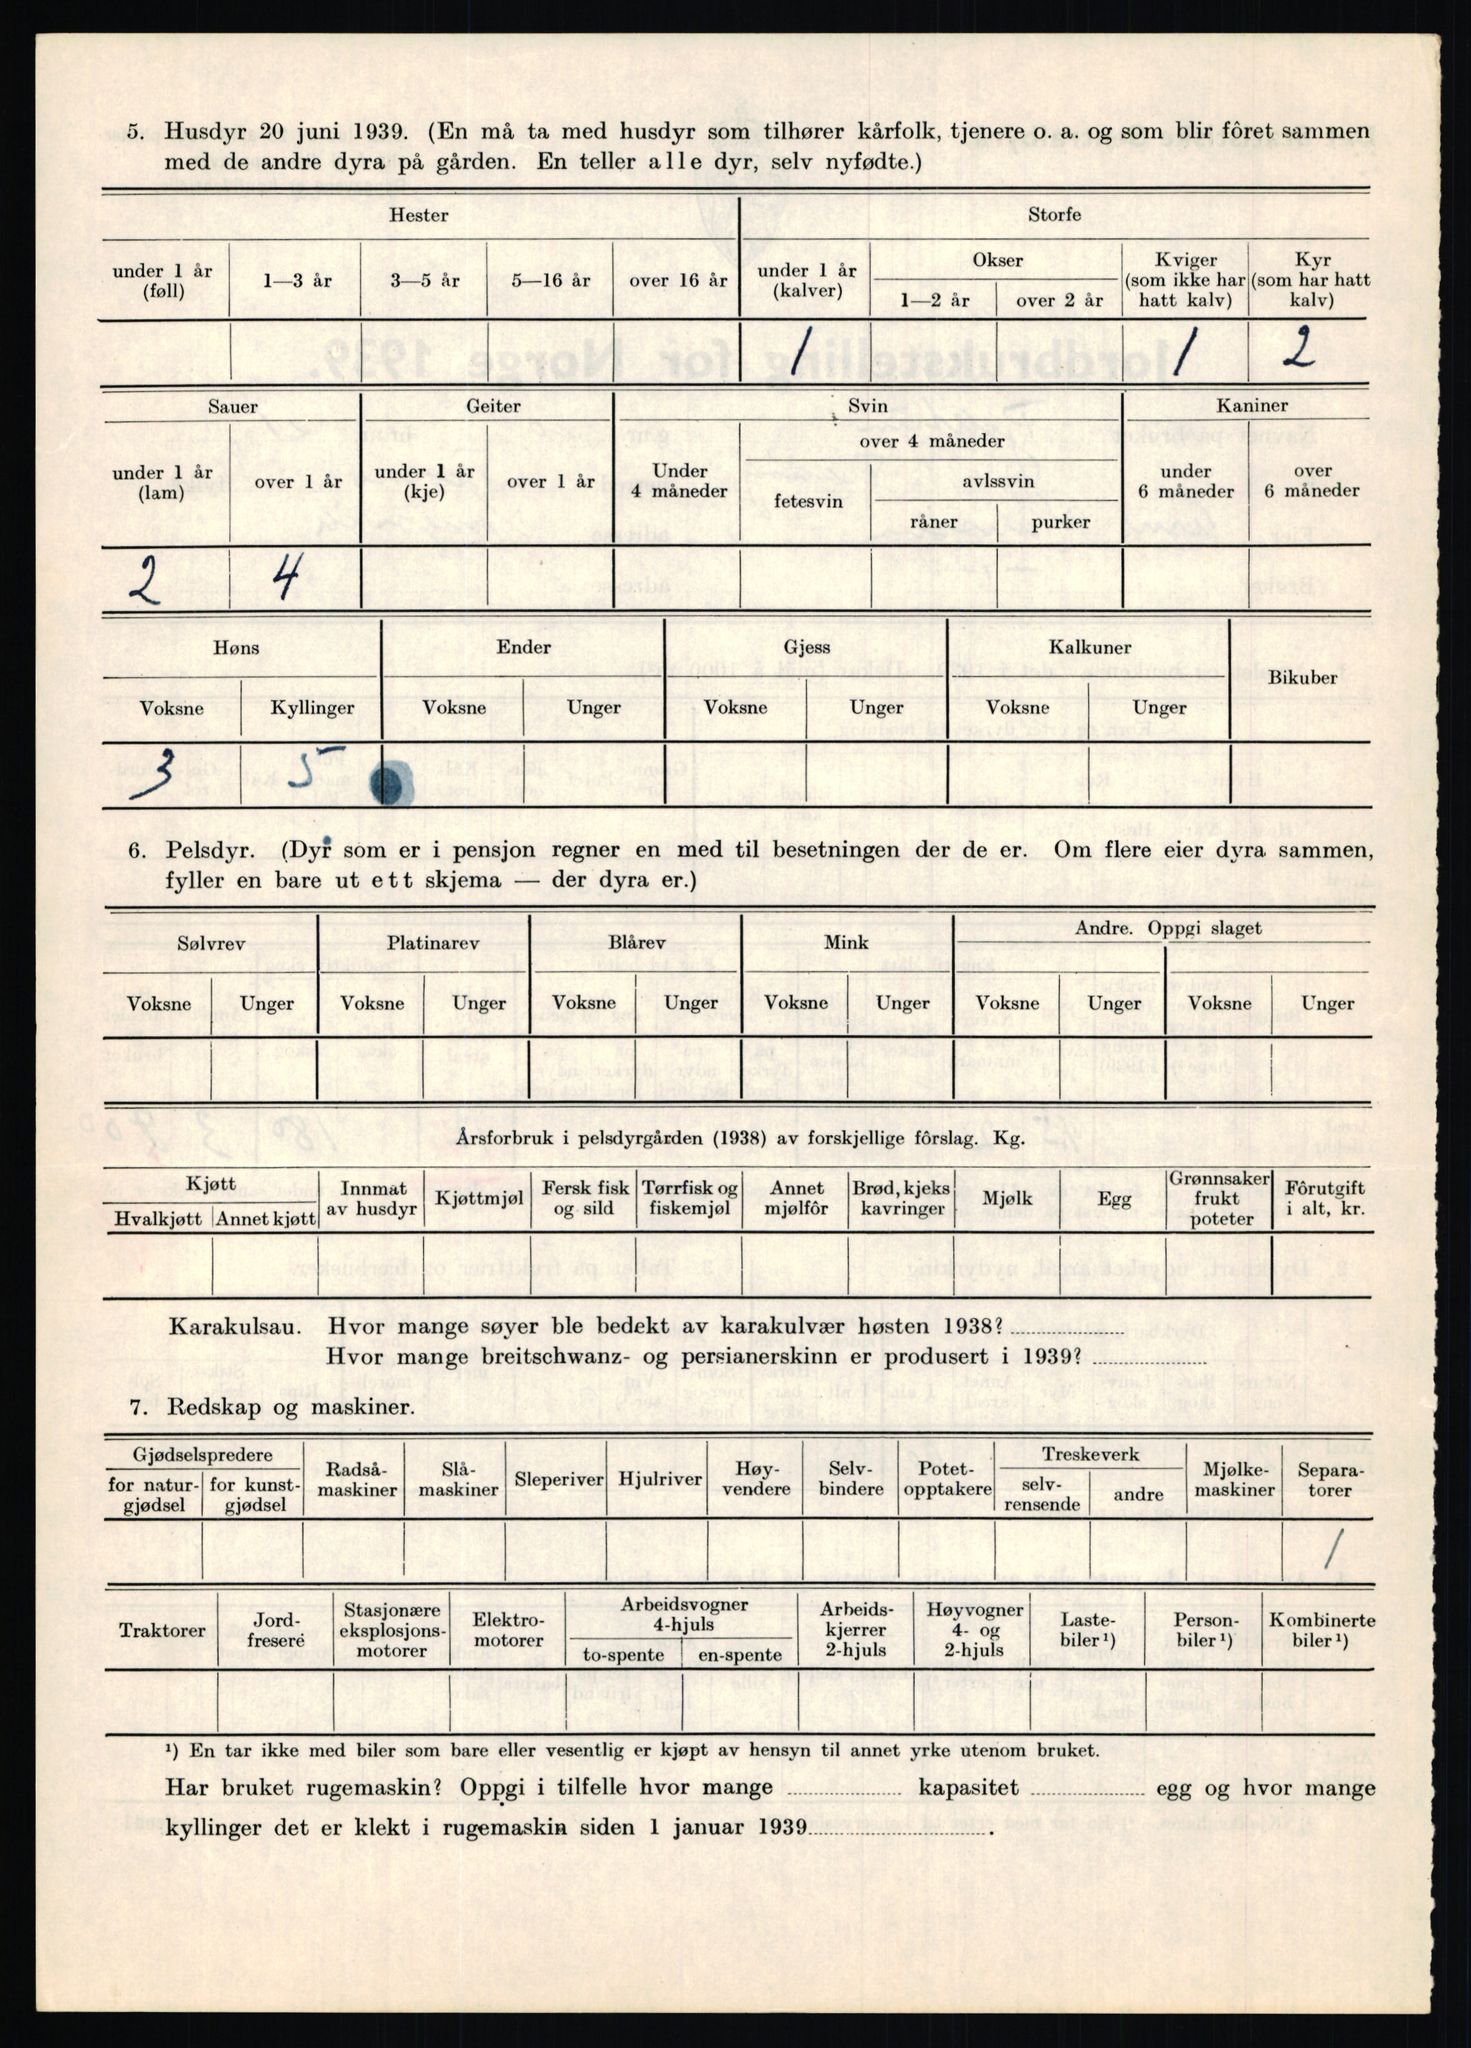 5. Husdyr 20 juni 1939. (En må ta med husdyr som tilhører kårfolk, tjenere o. a. og som blir fôret sammen
med de andre dyra på gården. En teller alle dyr, selv nyfødte.)
Hester Storfe
under 1 år (føll) 1—3 år 3—5 år 5—16 år over 16 år under 1 år (kalver) Okser 1—2 år over 2 år Kviger (som ikke har hatt kalv) Kyr (som har hatt kalv)
1 1 2
Sauer Geiter Svin Kaniner
under 1 år (lam) over 1 år under 1 år (kje) over 1 år Under 4 måneder over 4 måneder fetesvin avlssvin råner purker under 6 måneder over 6 måneder
2 4
Høns Ender Gjess Kalkuner Bikuber
Voksne Kyllinger Voksne Unger Voksne Unger Voksne Unger
3 5
6. Pelsdyr. (Dyr som er i pensjon regner en med til besetningen der de er. Om flere eier dyra sammen,
fyller en bare ut ett skjema — der dyra er.)
Sølvrev Platinarev Blårev Mink Andre. Oppgi slaget
Voksne Unger Voksne Unger Voksne Unger Voksne Unger Voksne Unger Voksne Unger
Årsforbruk i pelsdyrgården (1938) av forskjellige fôrslag. Kg.
Kjøtt Hvalkjøtt Annet kjøtt Innmat av husdyr Kjøttmjøl Fersk fisk og sild Tørrfisk og fiskemjøl Annet mjølfôr Brød, kjeks kavringer Mjølk Egg Grønnsaker frukt poteter Fôrutgift i alt, kr.
Karakulsau. Hvor mange søyer ble bedekt av karakulvær høsten 1938?
Hvor mange breitschwanz- og persianerskinn er produsert i 1939?
7. Redskap og maskiner.
Gjødselspredere for natur-gjødsel for kunst-gjødsel Radså-maskiner Slå-maskiner Sleperiver Hjulriver Høy-vendere Selv-bindere Potet-opptakere Treskeverk selv-rensende andre Mjølke-maskiner Separa-torer
1
Traktorer Jord-fresere Stasjonære eksplosjons-motorer Elektro-motorer Arbeidsvogner 4-hjuls to-spente en-spente Arbeids-kjerrer 2-hjuls Høyvogner 4- og 2-hjuls Laste-biler ¹) Person-biler ¹) Kombinerte biler ¹)
¹) En tar ikke med biler som bare eller vesentlig er kjøpt av hensyn til annet yrke utenom bruket.
Har bruket rugemaskin? Oppgi i tilfelle hvor mange kapasitet egg og hvor mange
kyllinger det er klekt i rugemaskin siden 1 januar 1939 .